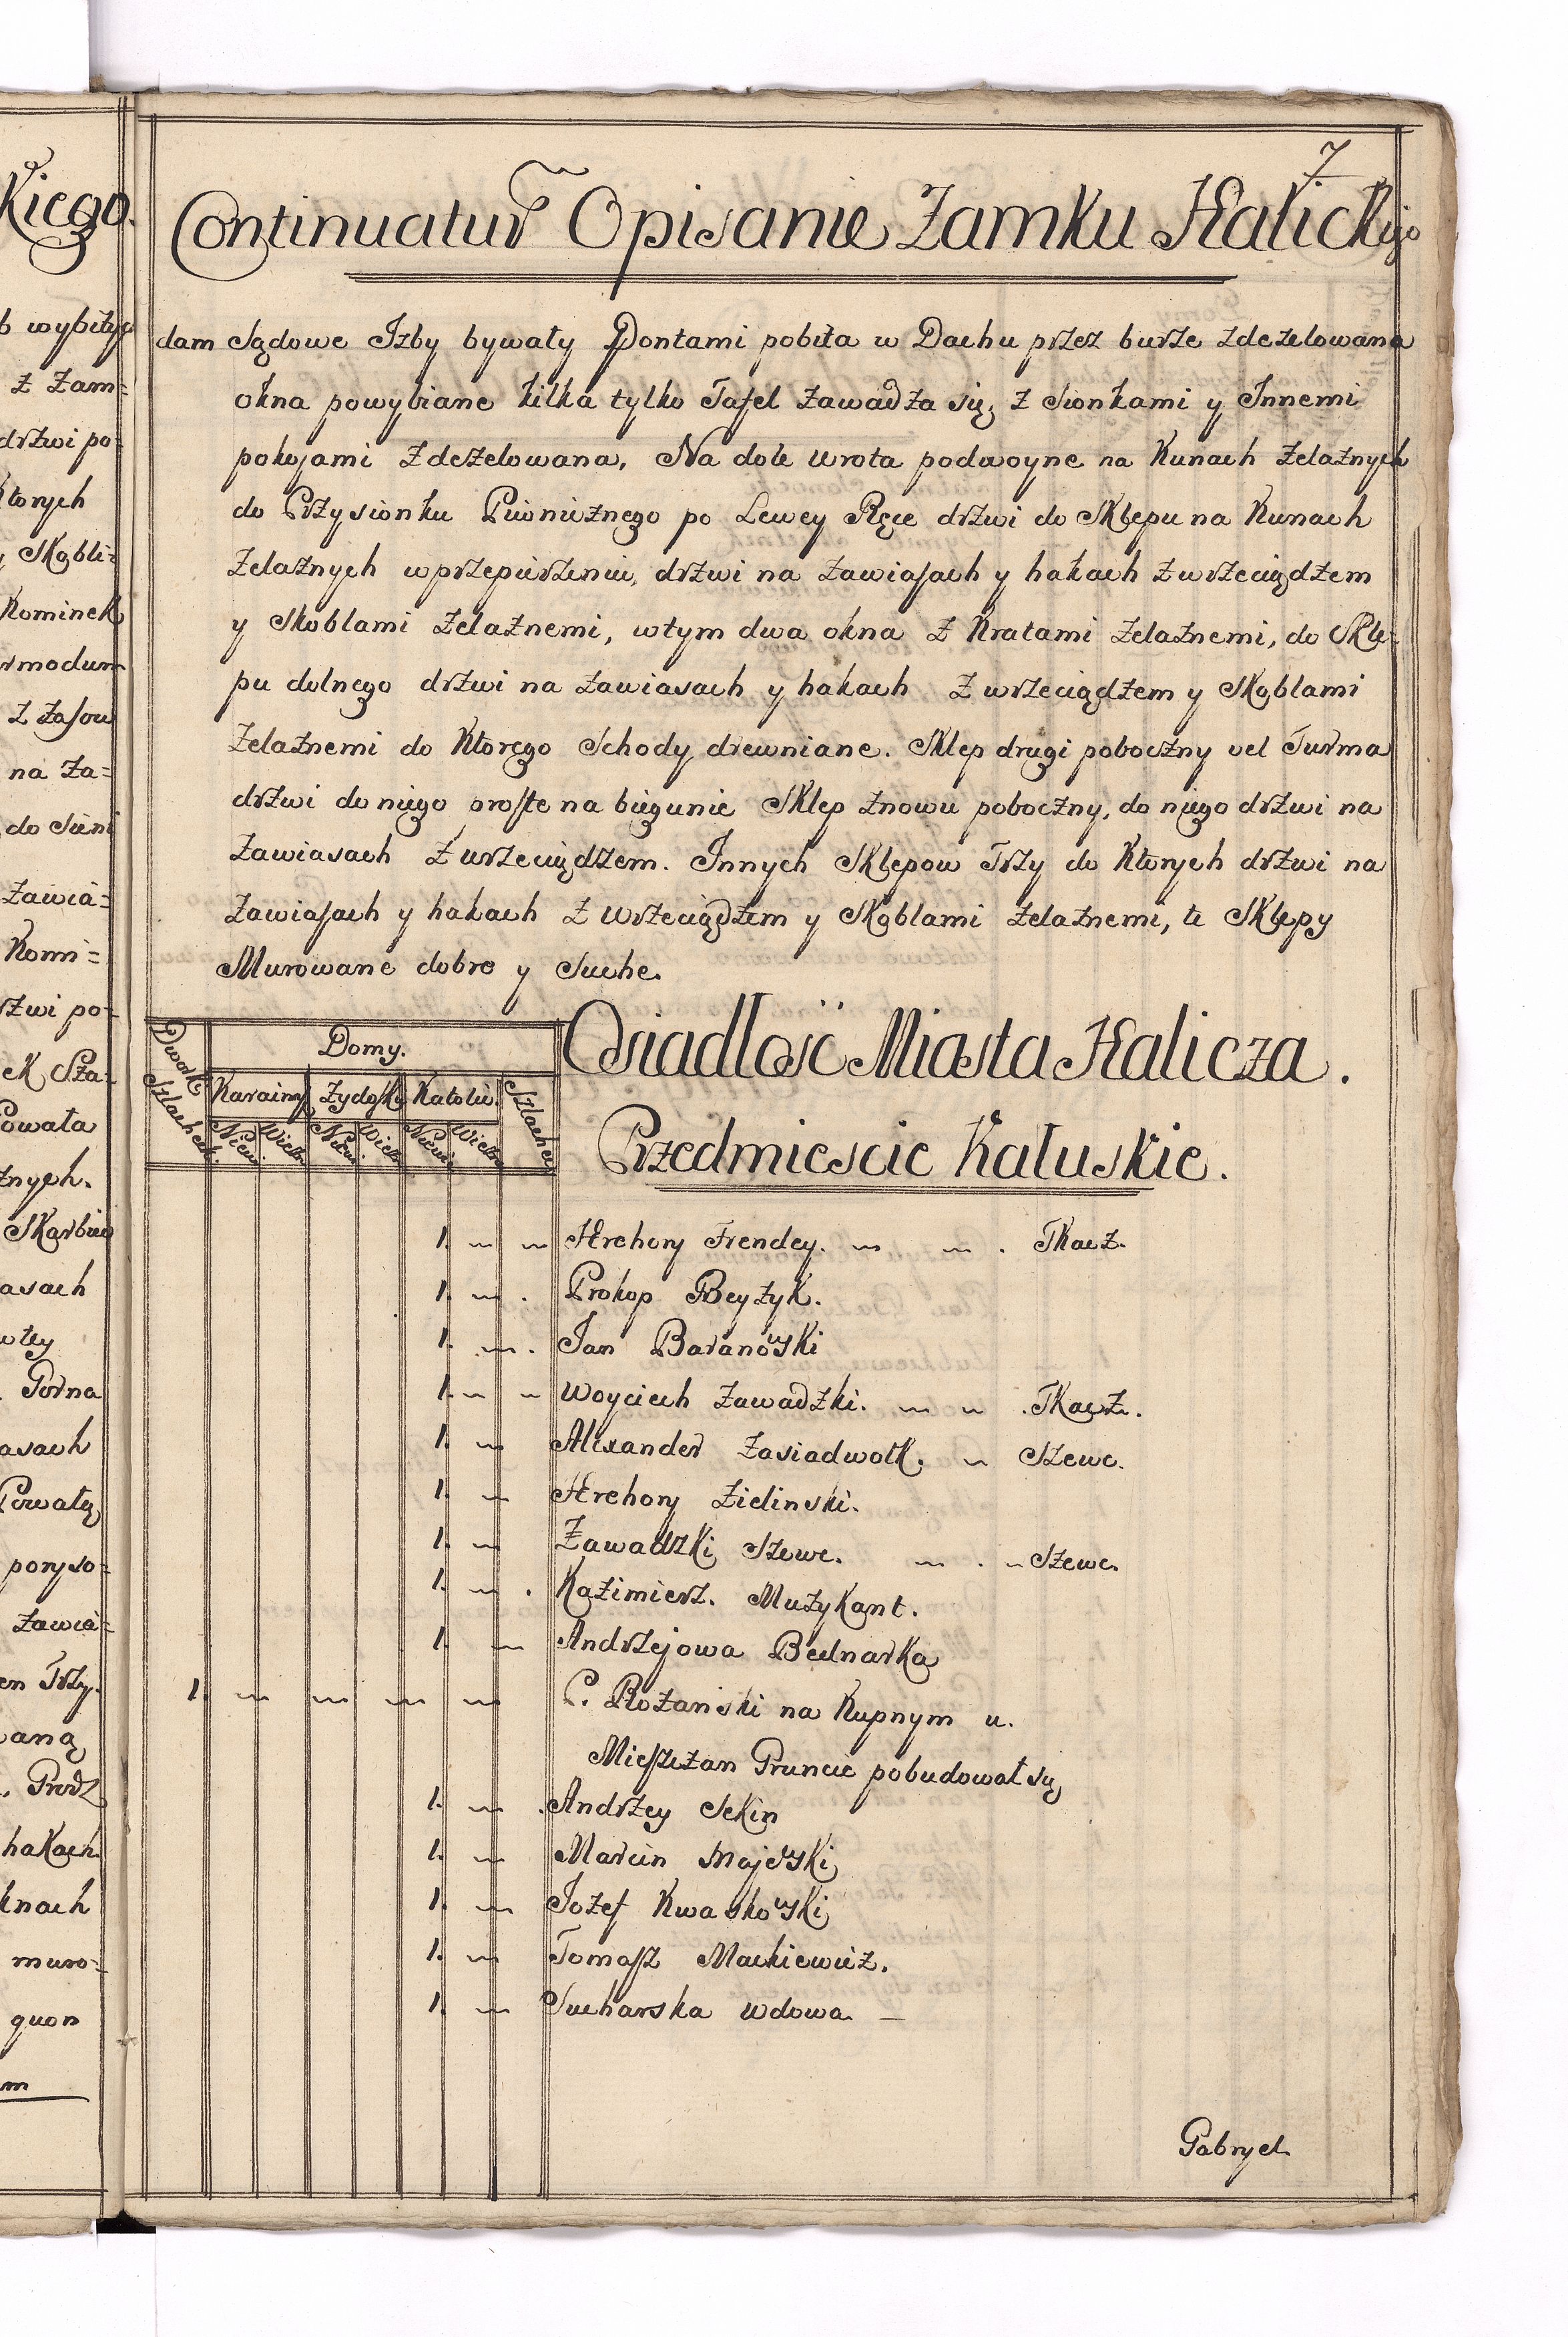 Kiego.
b wybitych
z Zam=
drzwi po=
Ktorych
y Skobli=
Kominek
modum
z Zasow
na Za=
do Sieni
Zawia=
Komi=
drzwi po=
ek Sza=
Powała
znych.
Skarbiec
asach
wtey
Gorna
asach
Powałą
poryso=
Zawia=
em Trzy.
waną
hakach
knach
muro=
quon
m
7.
Continuatur Opisanie Zamku Halickiego
dam Sądowe Izby bywały Gontami pobita w Dachu przez burze zdezelowana
okna powybiane kilka tylko Tafel zawadza się, z Sionkami y Innemi
pokojami zdezelowana, Na dole wrota podwoyne na Kunach Zelaznych
do Przysionku Piwnicznego po Lewey Ręce drzwi do Sklepu na Kunach
Zelaznych w przepierzeniu, drzwi na zawiasach y hakach z wrzeciądzem
y Skoblami Zelaznemi, wtym dwa okna z Kratami Zelaznemi, do Skle=
pu dolnego drzwi na zawiasach y hakach z wrzeciądzem y Skoblami
Zelaznemi do Ktorego Schody drewniane. Sklep drugi poboczny vel Turma
drzwi do niego proste na biegunie Sklep znowu poboczny, do niego drzwi na
Zawiasach z wrzeciądzem. Innych Sklepow Trzy do Ktorych drzwi na
Zawiasach y hakach z wrzeciądzem y Skoblami Zelaznemi, te Sklepy
Murowane dobre y Suche.
Osiadłość Miasta Halicza.
Przedmiescie Kałuskie.
Dwork Szlacheck.
Domy.
Karaims Zydosk Katolic. Szlachec
Niewi Wieln Niewi Wieln Niewi Wieln
1. Hrehory Frendey. Tkacz.
1. Prokop Beyzyk.
1. Jan Baranowski
1. Woyciech Zawadzki. Tkacz.
1. Alexander Zasiadwolk. Szewc.
1. Hrehory Zielinski.
1. Zawadzki Szewc. Szewc.
1. Kazimierz. Muzykant.
1. Andrzejowa Bednarka
1. P. Rozanski na Kupnym u.
Mieszczan Gruncie pobudował się
1. Andrzey Sekin
1. Marcin Majewski
1. Jozef Kwaskowski
1. Tomasz Mackiewicz.
1. Sucharska wdowa.
Gabryel